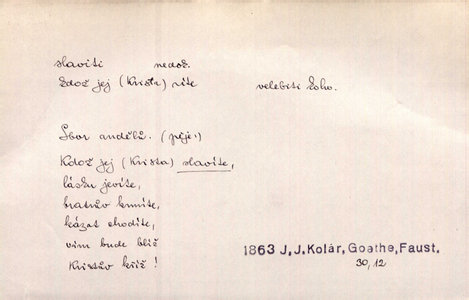 slaviti nedok.
Kdož jej (Krista) zříte velebiti koho.
Sbor andělů. (pěje:)
Kdož jej (Krista) slavíte,
lásku jevíte,
bratrův krmíte,
kázat chodíte,
vám bude blíž
Kristův kříž!
1863 J.J.Kolár, Goethe, Faust.
30,12